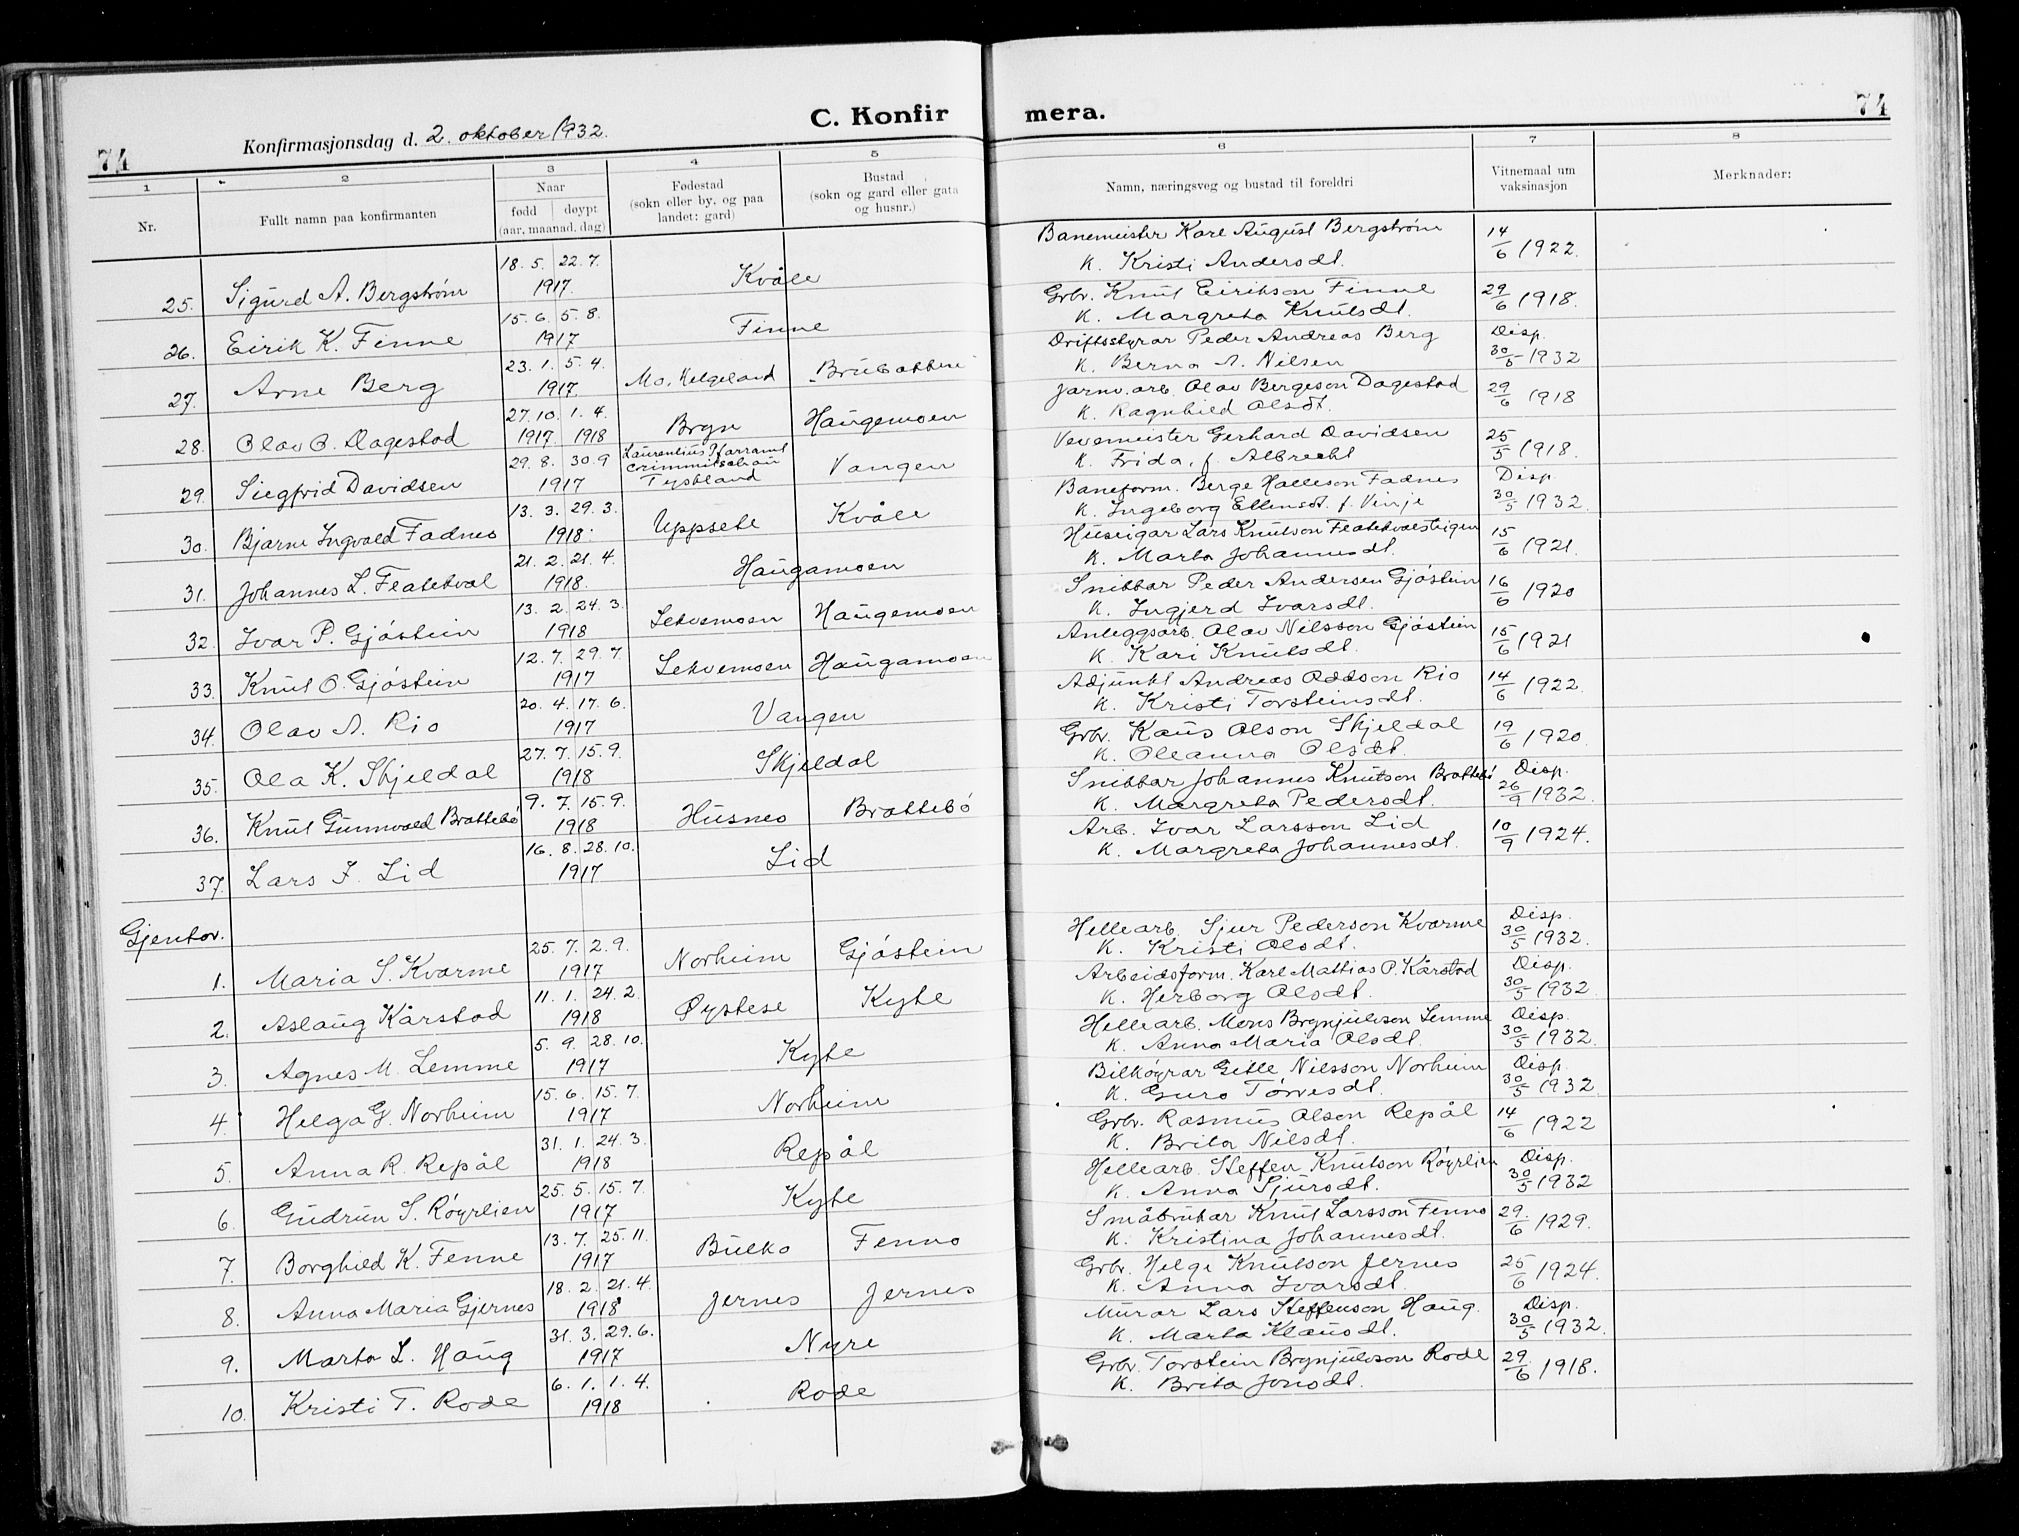 74
Konfirmasjonsdag d. 2. oktober 1932.
C. Konfir mera.
74
1 2 3 4 5 6 7 8
Nr.
Fullt namn paa konfirmanten
Naar
fødd | døypt
(aar, maanad, dag)
Fødestad
(sokn eller by, og paa
landet: gard)
Bustad
(sokn og gard eller gata
og husnr.)
Namn, næringsveg og bustad til foreldri
Vitnemaal um
vaksinasjon
Merknader:
25. Sigurd A. Bergstrøm 18.5. 22.7. 1917. Kvåle Banemeister Karl August Bergstrøm 14/6 1922.
K. Kristi Andersdt.
26. Eirik K. Finne 15.6. 5.8. 1917 Finne Grbr. Knut Eirikson Finne 29/6 1918.
K. Margreta Knutsdt.
27. Arne Berg 23.1. 5.4. 1917. Mo, Helgeland Driftsstyrar Peder Andreas Berg Disp. 30/5 1932
K. Berna A. Nilsen
28. Olav O. Dagestad 27.10. 1.4. 1917. 1918 Bryn Haugemoen Jarnv.arb. Olav Bergeson Dagestad 29/6 1918
K. Ragnhild Olsdt.
29. Siegfrid Davidsen 29.8. 30.9 1917 Laurentius Pfarramt
Crimmitschau
Tyskland Vangen Vevemeister Gerhard Davidsen 25/5 1918.
K. Frida, f. Albrecht
30. Bjarne Ingvald Fadnes 13.3. 29.3. 1918. Uppsete Kvåle Baneform. Berge Halleson Fadnes Disp. 30/5 1932.
K. Ingeborg Ellensdt. f. Vinje
31. Johannes L. Flatekval 21.2. 21.4. 1918. Haugamoen Huseigar Lars Knutson 15/6 1921.
K. Marta Johannesdt.
32. Ivar P. Gjøstein 13.2. 24.3. 1918 Lekvemoen Haugemoen Snikkar Peder Andersen Gjøstein 16/6 1920
K. Ingjerd Ivarsdt.
33. Knut O. Gjøstein 12.7. 29.7. 1917 Lekvemoen Haugamoen Anleggsarb. Olav Nilsson Gjøstein 15/6 1921
K. Kari Knutsdt.
34. Olav A. Rio 20.4. 17.6. 1917 Vangen Adjunkt Andreas Oddson Rio 14/6 1922.
K. Kristi Torsteinsdt.
35. Ola K. Skjeldal 27.7. 15.9. 1918 Skjeldal Grbr. Kaus Olson Skjeldal 19/6 1920.
K. Oleanna Olsdt.
36. Knut Gunnvald Brattebø 9.7. 15.9. 1918 Husnes Brattebø Snikkar Johannes Knutson Brattebø Disp. 26/9 1932.
K. Margreta Pedersdt.
37. Lars I. Lid 16.8. 28.10. 1917 Lid Arb. Ivar Larsson Lid 10/9 1924.
K. Margreta Johannesdt.
Gjentor.
1. Maria S. Kvarme 25.7. 2.9. 1917 Norheim Gjøstein Hellearb. Sjur Pederson Kvarme Disp. 30/5 1932.
K. Kristi Olsdt.
2. Aslaug Kårstad 11.1. 24.2. 1918 Øystese Kyte Arbeidsform. Karl Mathias P. Kårstad Disp. 30/5 1932.
K. Herborg Olsdt.
3. Agnes M. Lemme 5.9. 28.10. 1917 Kyte Hellearb. Mons Brynjulvson Lemme Disp. 30/5 1932.
K. Anna Maria Olsdt.
4. Helga G. Norheim 15.6. 15.7. 1917 Norheim Bilkøyrar Gitle Nilsson Norheim Disp. 30/5 1932
K. Guro Tørresdt.
5. Anna R. Repål 31.1. 24.3. 1918 Repål Grbr. Rasmus Olson Repål 14/6 1922
K. Brita Nilsdt.
6. Gudrun S. Røyrlien 25.5. 15.7. 1917 Kyte Hellearb. Steffen Knutson Røyrlien Disp. 30/5 1932
K. Anna Sjursdt.
7. Borghild K. Finne 13.7. 25.11. 1917 Bulko Finno Småbrukar Knut Larsson Finno 29/6 1929.
K. Kristina Johannesdt.
8. Anna Maria Gjernes 18.2. 21.4. 1918 Jernes Jernes Grbr. Helge Knutson Jernes 25/6 1924.
K. Anna Ivarsdt.
9. Marta L. Haug 31.3. 29.6. 1917 Nyre Murar Lars Steffenson Haug. Disp. 30/5 1932.
K. Marta Klausdt.
10. Kristi T. Rode 6.1. 1.4. 1918 Rode Grbr. Torstein Brynjulvson Rode 29/6 1918.
K. Brita Jonsdt.